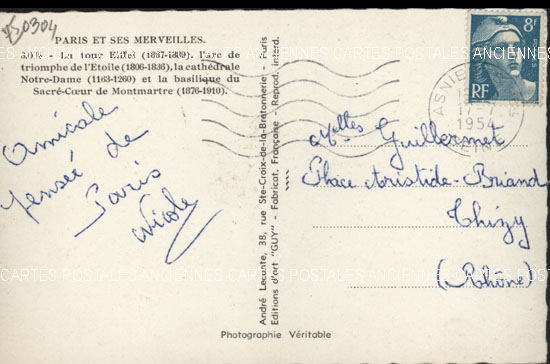 250304
PARIS ET SES MERVEILLES.
La tour Eiffel (1887-1889), l'arc de
triomphe de l'Etoile (1806-1836), la cathédrale
Notre-Dame (1163-1260) et la basilique du
Sacré-Cœur de Montmartre (1876-1910).
Amicale
pensée de
Paris
Nicole
André Leconte, 38, rue Ste-Croix-de-la-Bretonnerie - Paris
Editions d'art "GUY" - Fabricat. Française - Reprod. interd.
8F
RF
ASNIE
17-7
1954
Melles Guillermet
Place Aristide-Briand
Thizy
(Rhône)
Photographie Véritable
CARTES POSTALES ANCIENNES